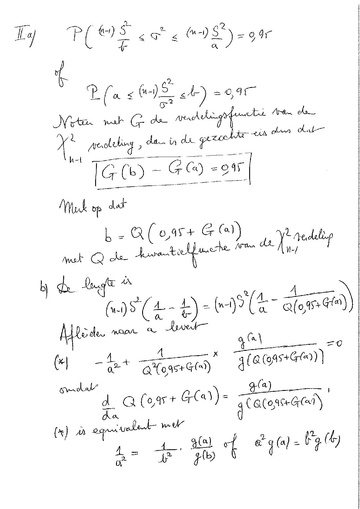 IIa) P((n-1) S²/b ≤ σ² ≤ (n-1) S²/a) = 0,95
of
P(a ≤ (n-1) S²/σ² ≤ b) = 0,95
Noteer met G de verdelingsfunctie van de
χ²n-1 verdeling, dan is de gezochte eis dus dat
G(b) - G(a) = 0,95
Merk op dat
b = Q(0,95 + G(a))
met Q de kwantielfunctie van de χ²n-1 verdeling
b) De lengte is
(n-1)S² (1/a - 1/b) = (n-1)S² (1/a - 1/Q(0,95+G(a)))
Afleiden naar a levert
(*) -1/a² + 1/Q²(0,95+G(a)) × g(a)/g(Q(0,95+G(a))) = 0
omdat
d/da Q(0,95+G(a)) = g(a)/g(Q(0,95+G(a))),
(*) is equivalent met
1/a² = 1/b² · g(a)/g(b) of a² g(a) = b² g(b)